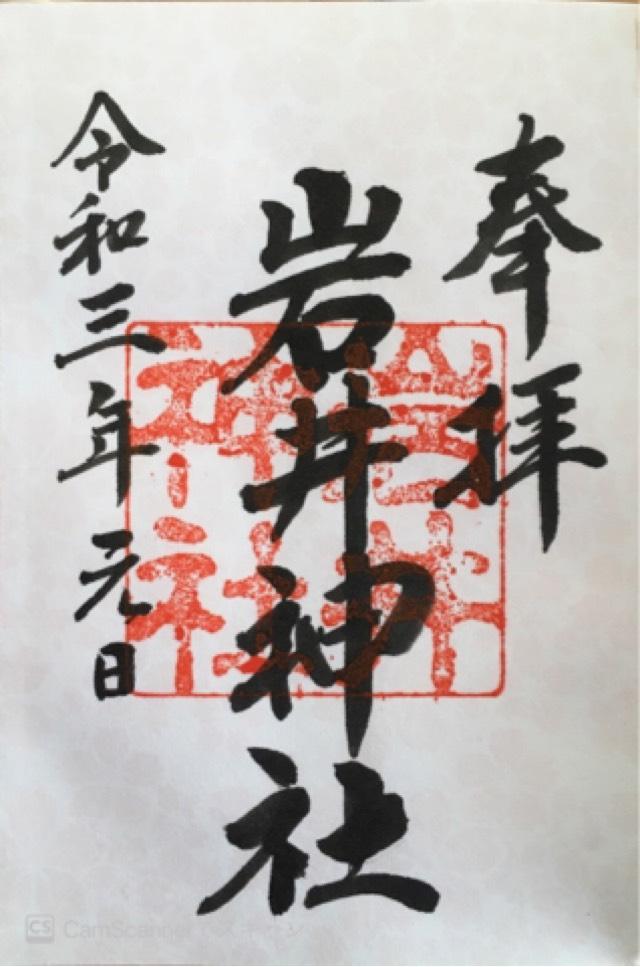 奉拝
岩井神社
令和三年元日
岩井
神社
CS CamScannerでスキャン